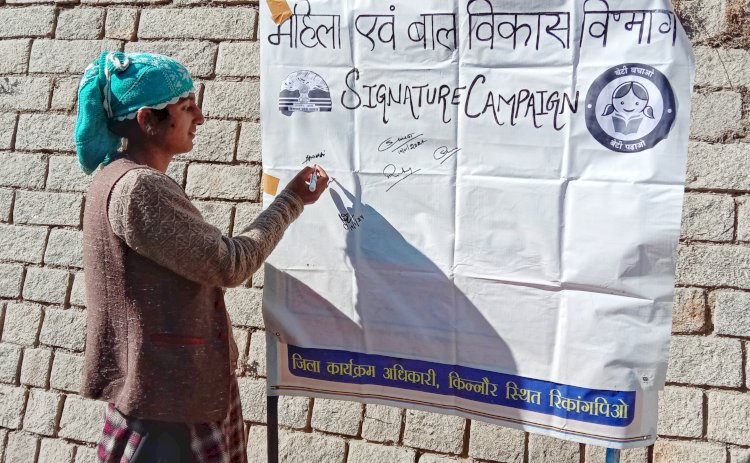 महिला एवं बाल विकास विभाग
SIGNATURE CAMPAIGN
बेटी बचाओ
बेटी पढ़ाओ
जिला कार्यक्रम अधिकारी, किन्नौर स्थित रिकांगपिओ